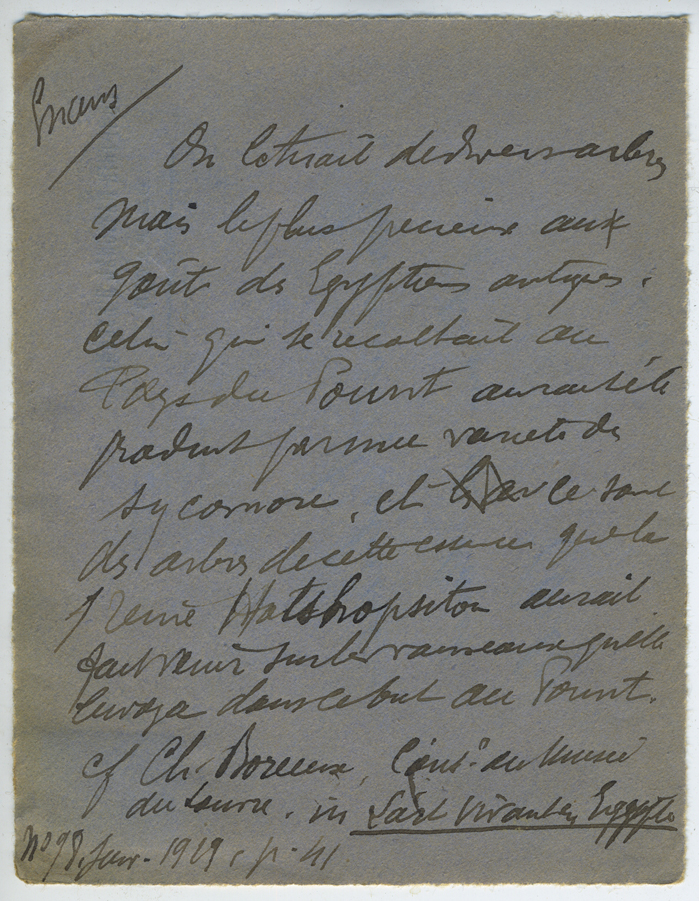 Encens
On l'extrait de divers arbres
mais le plus precieux aux
goûts des Egyptiens antiques.
celui qui se recoltait au
Pays du Pount aurait été
produit par une varieté de
sycomore, et ce sont
des arbres de cette essence que la
reine Hatshopsitou aurait
fait venir sur les vaisseaux qu'elle
envoya dans ce but au Pount.
cf Ch. Boreux, Cons.r au Musée
du Louvre. in L'art Vivant en Egypte
No 98. Janv. 1929, p. 41